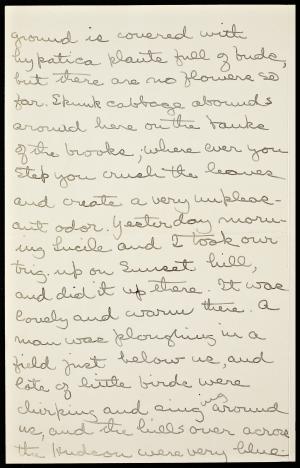 ground is covered with
hypatica plants full of buds,
but there are no flowers so
far. Skunk cabbage abounds
around here on the banks
of the brooks, where ever you
step you crush the leaves
and create a very unpleas-
ant odor. Yesterday morn-
ing Lucile and I took our
trig. up on Sunset hill,
and did it up there. It was
lovely and warm there. A
man was ploughing in a
field just below us, and
lots of little birds were
chirking and singing around
us, and the hills over across
the Hudson were very blue